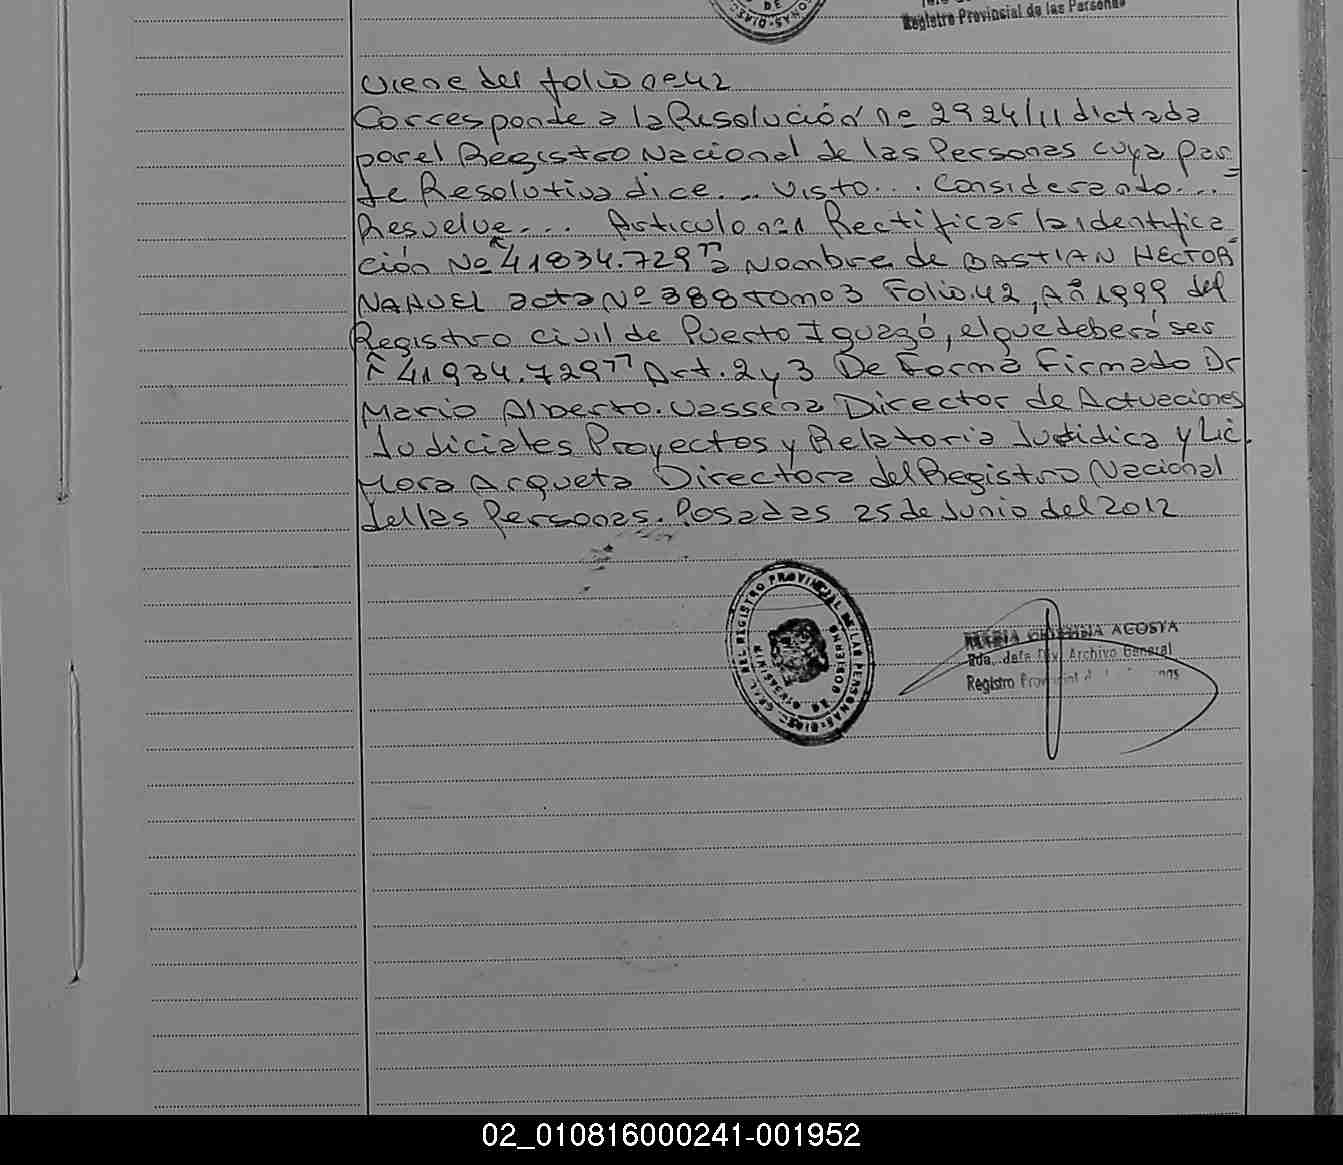 DE
Registro Provincial de las Personas
Viene del folio nº 42
Corresponde a la Resolución nº 2924/11 dictada
por el Registro Nacional de las Personas cuya par=
te Resolutiva dice... Visto... Considerando...
Resuelve... Articulo nº1 Rectificar la identifica=
ción Nº "41834.729" a Nombre de BASTIAN HECTOR
NAHUEL acta Nº 388 tomo 3 Folio.42, Añ 1999 del
Registro civil de Puerto Iguazú, el que deberá ser
"41934.729" Art. 2 y 3 De Forma Firmado Dr
Mario Alberto. Vassena Director de Actuaciones
Judiciales Proyectos y Relatoria Juridica y Lic.
Mora Arqueta Directora del Registro Nacional
del las Personas. Posadas 25 de Junio del 2012
DEL REGISTRO PROVINCIAL DE LAS PERSONAS
MARIA ACOSTA
Archivo General
Registro
02_010816000241-001952